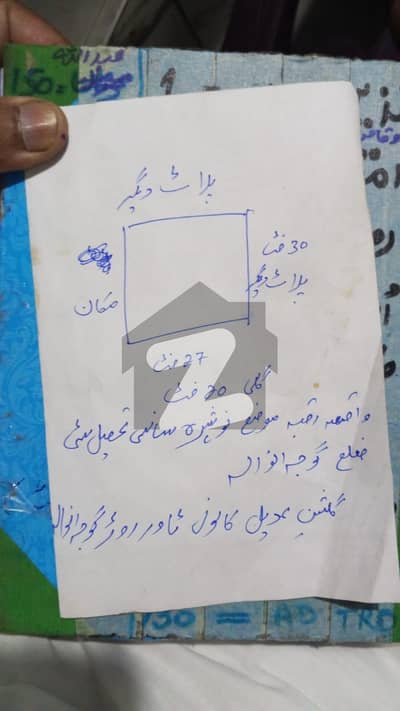 عبداللہ
150=
پلاٹ دیگر
30 فٹ
پلاٹ دیگر
مکان
27 فٹ
گلی 20 فٹ
واقعہ رقبہ موضع نوشہرہ سانسی تحصیل سٹی
ضلع گوجرانوالہ
گلشن کالونی ٹاور روڈ گوجرانوالہ
= AD TRD